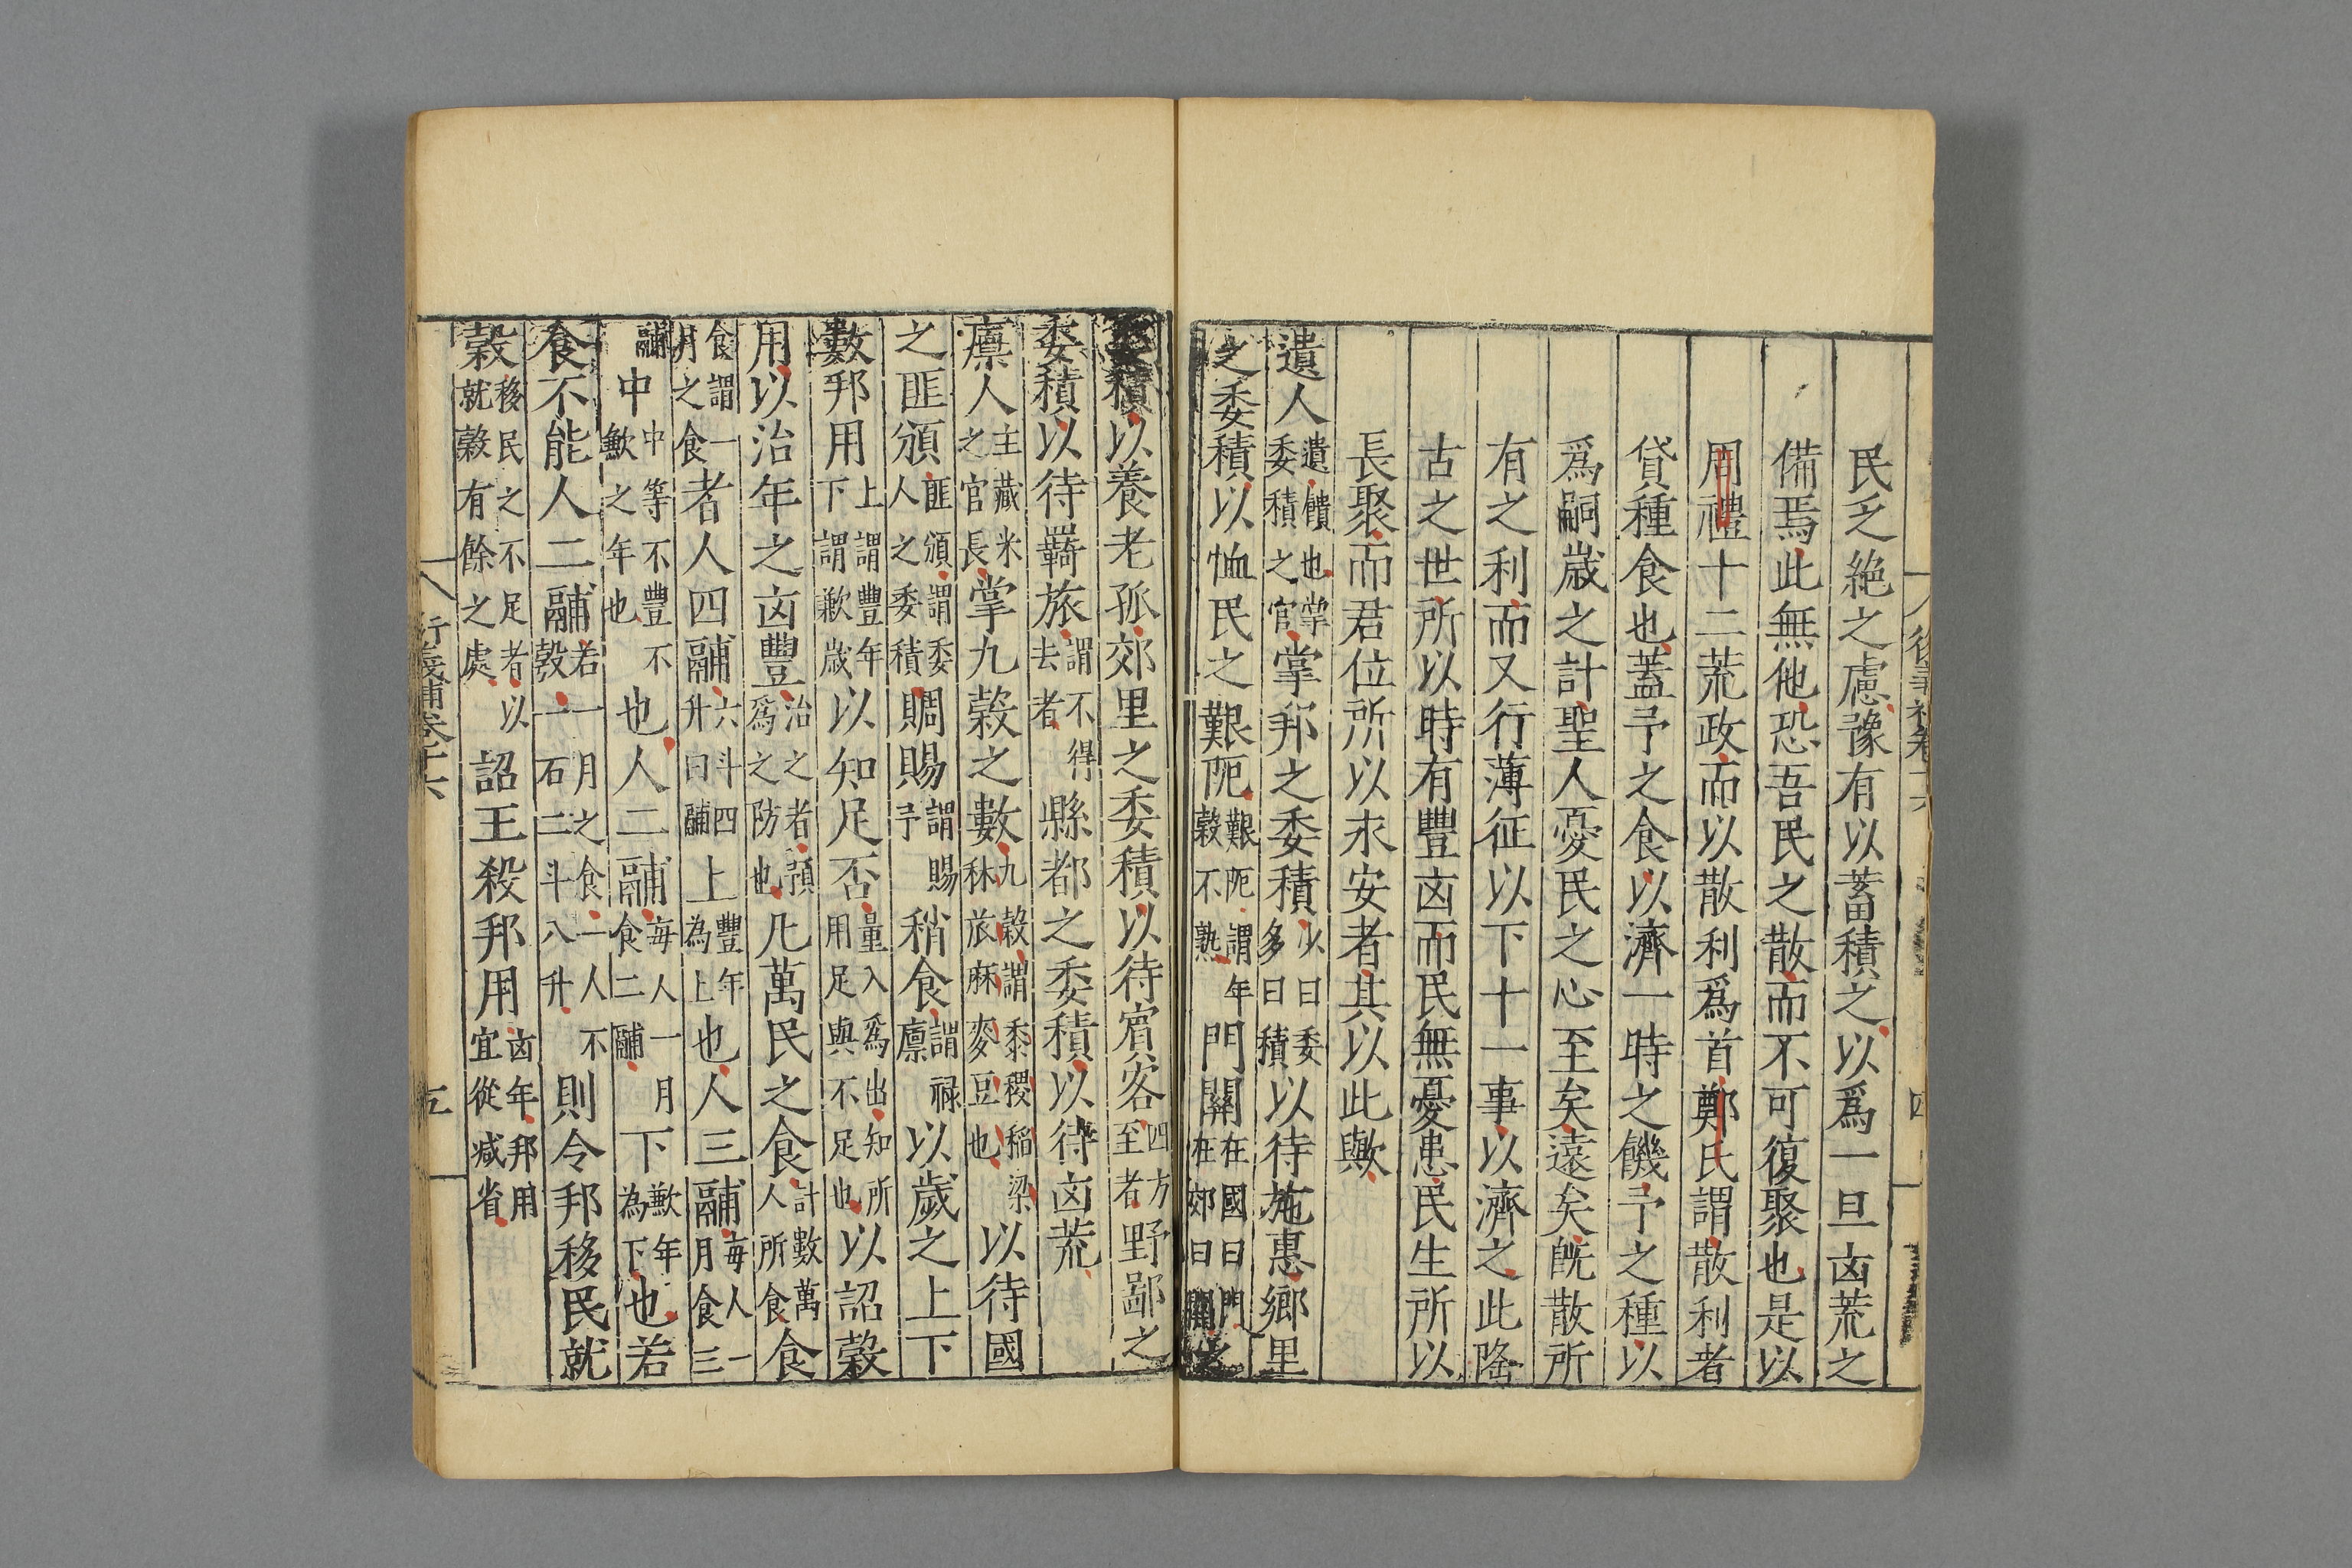 民乏絶之慮豫有以蓄積之以爲一旦凶荒之
備焉此無他恐吾民之散而不可復聚也是以
周禮十二荒政而以散利爲首鄭氏謂散利者
貸種食也蓋予之食以濟一時之饑予之種以
爲嗣歲之計聖人憂民之心至矣遠矣旣散所
有之利而又行薄征以下十一事以濟之此隆
古之世所以時有豐凶而民無憂患民生所以
長聚而君位所以永安者其以此歟
遺人遺饋也掌委積之官掌邦之委積少曰委多曰積以待施惠鄉里
之委積以恤民之艱阨艱阨謂年穀不熟門關在國曰門在郊曰關之
委積以養老孤郊里之委積以待賓客四方至者野鄙之
委積以待羇旅謂不得去者縣都之委積以待凶荒
廩人主藏米之官長掌九榖之數九榖謂黍稷稻梁秫苽麻麥豆也以待國
之匪頒匪頒謂委人之委積賙賜謂賜予稍食謂禄廪以歲之上下
數邦用上謂豐年下謂歉歲以知足否量入爲出知所用足與不足也以詔榖
用以治年之凶豐治之者預爲之防也凡萬民之食計數萬人所食食
食謂一月之食者人四鬴六斗四升曰鬴上豐年為上也人三鬴每人一月食三
鬴中中等不豐不歉之年也也人二鬴每人一月食二鬴下歉年為下也若
食不能人二鬴若一月之食一人不榖一石二斗八升則令邦移民就
榖移民之不足者以就榖有餘之處詔王殺邦用凶年邦用宜從减省
衍義補卷十六
五